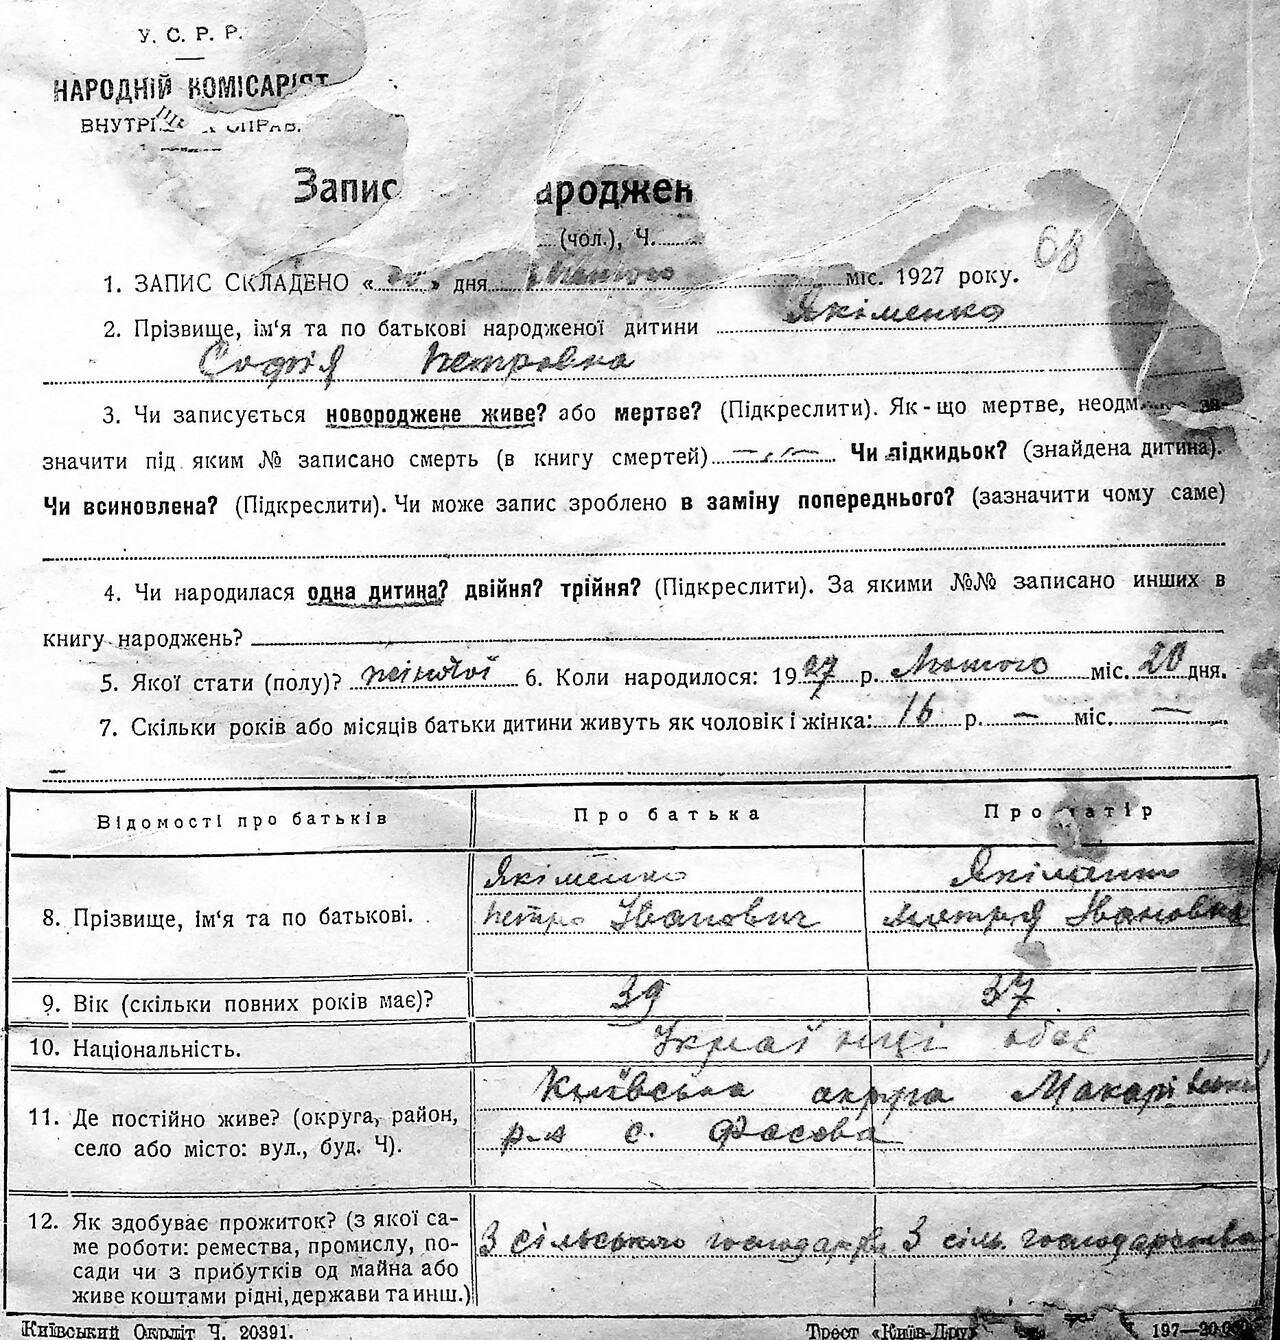 У. С. Р. Р.
НАРОДНІЙ КОМІСАРІЯТ
ВНУТРІ СПРАВ.
Запис ароджен
(чол.), Ч.
68
1. ЗАПИС СКЛАДЕНО « » дня Лютого міс. 1927 року.
2. Прізвище, ім‘я та по батькові народженої дитини Якіменко
Софія Петровна
3. Чи записується новороджене живе? або мертве? (Підкреслити). Як-що мертве, неодм за-
значити під яким № записано смерть (в книгу смертей) Чи підкидьок? (знайдена дитина).
Чи всиновлена? (Підкреслити). Чи може запис зроблено в заміну попереднього? (зазначити чому саме)
4. Чи народилася одна дитина? двійня? трійня? (Підкреслити). За якими №№ записано инших в
книгу народжень?
5. Якої стати (полу)? жіночої 6. Коли народилося: 1927 р. Лютого міс. 20 дня.
7. Скільки років або місяців батьки дитини живуть як чоловік і жінка: 16 р. — міс. —
Відомості про батьків Про батька Про матір
Якіменко Якіменко
8. Прізвище, ім‘я та по батькові. Петро Іванович Івановна
9. Вік (скільки повних років має)? 39 37
10. Національність. Українці обоє
Київська округа Макарівський
11. Де постійно живе? (округа, район, р-н с. Фасова
село або місто: вул., буд. Ч).
12. Як здобуває прожиток? (з якої са-
ме роботи: ремества, промислу, по- З сільського господарств З сіль. господарства
сади чи з прибутків од майна або
живе коштами рідні, держави та инш.)
Київський Окрліт Ч. 20391. Трест «Київ-Дру 197—20.0